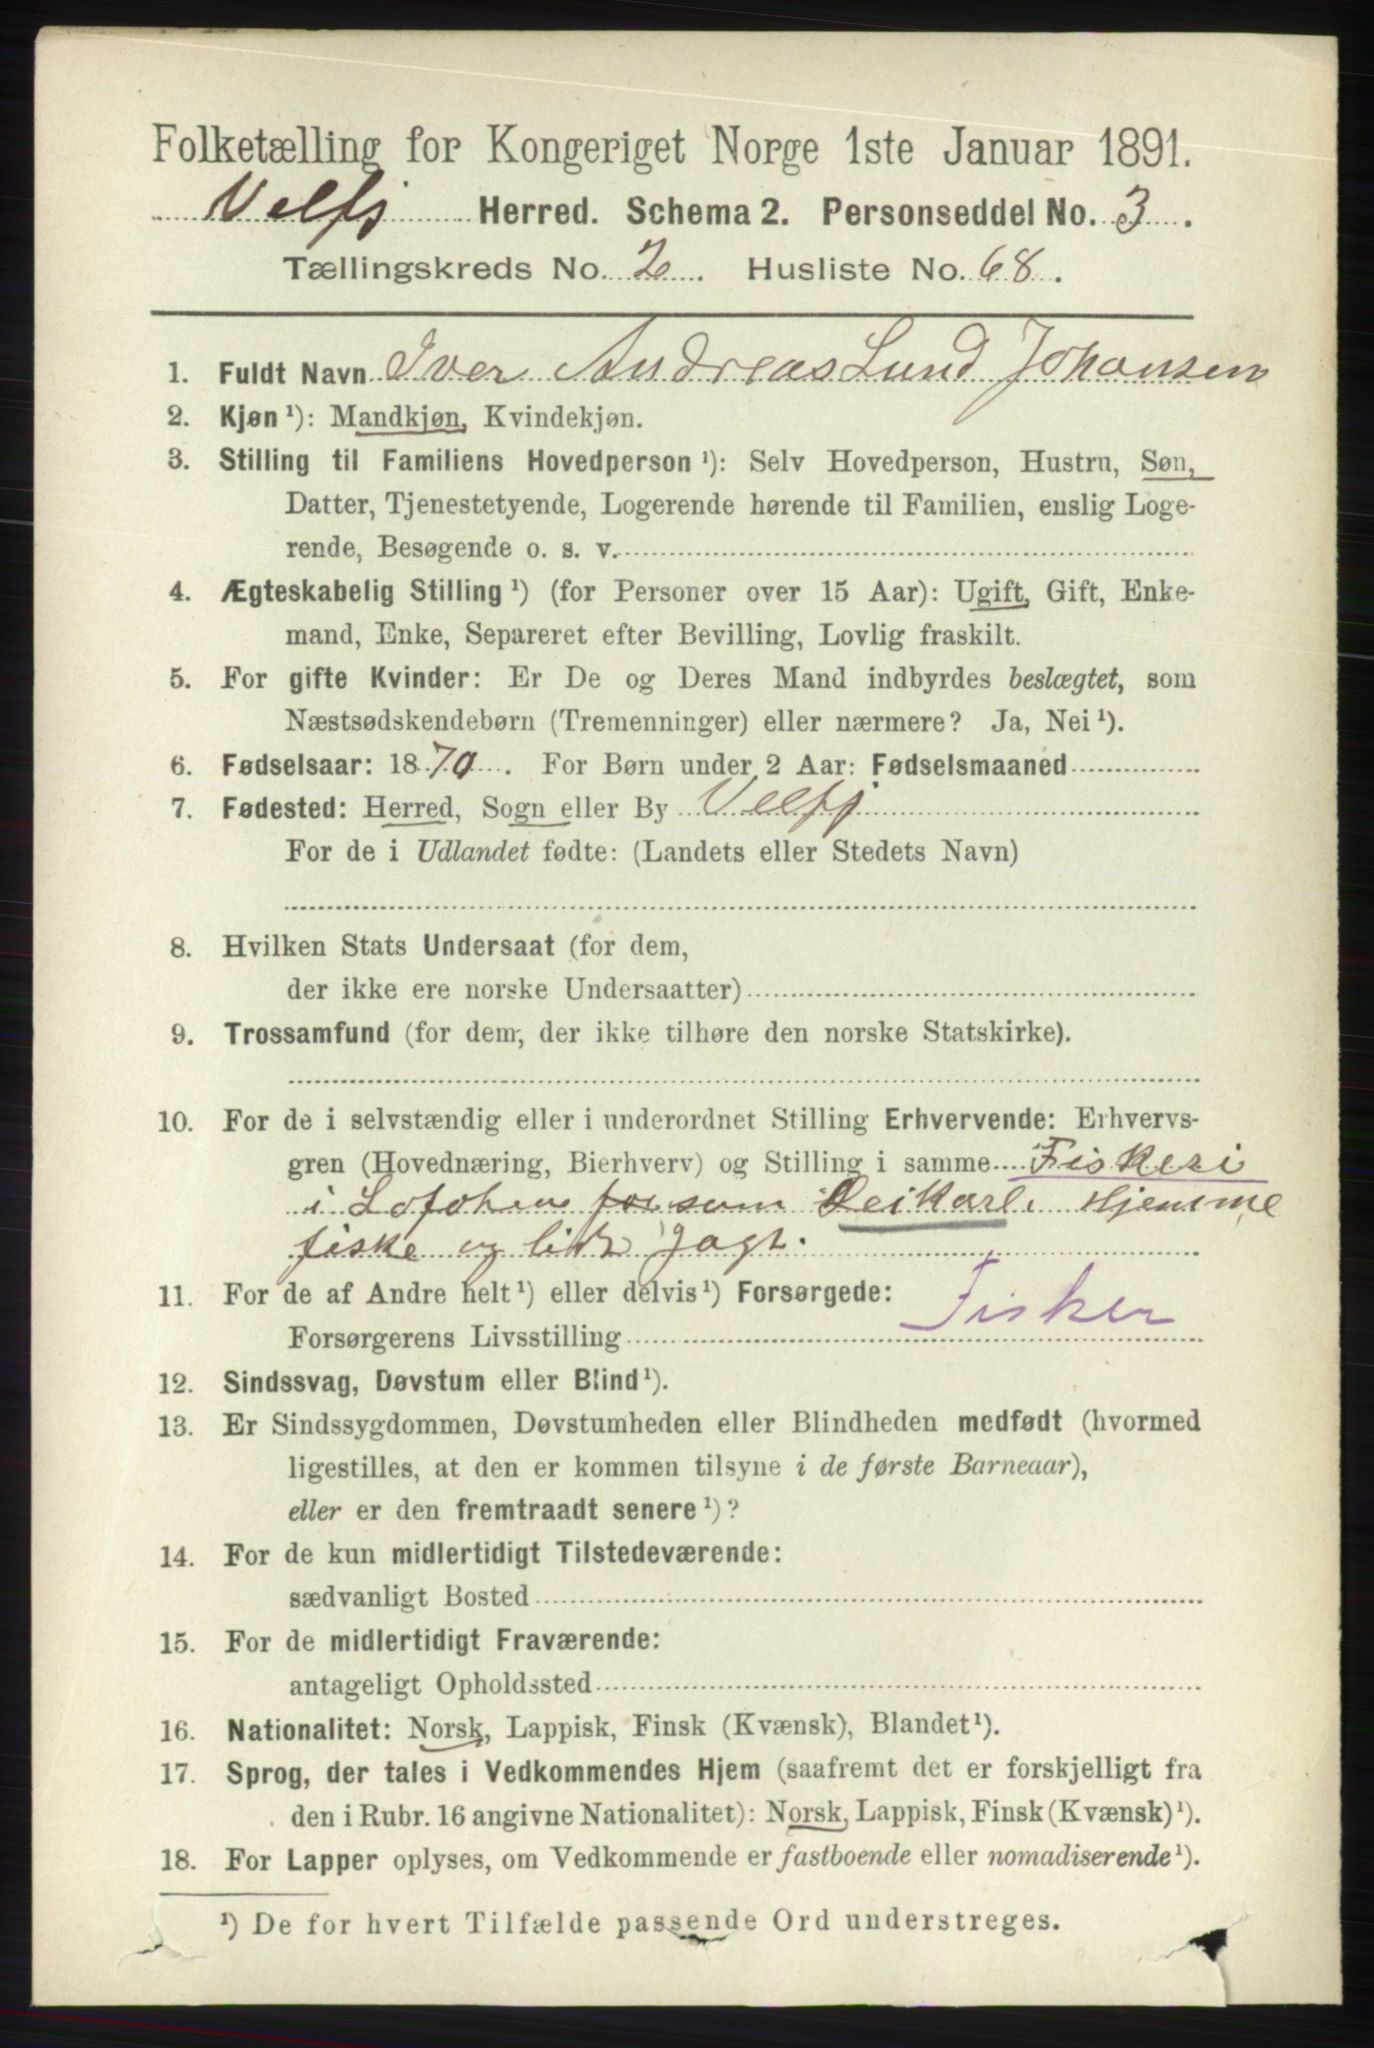 Folketælling for Kongeriget Norge 1ste Januar 1891.
Velfj Herred. Schema 2. Personseddel No. 3.
Tællingskreds No. 2. Husliste No. 68.
1. Fuldt Navn Iver Andreas Lund Johansen
2. Kjøn ¹): Mandkjøn, Kvindekjøn.
3. Stilling til Familiens Hovedperson ¹): Selv Hovedperson, Hustru, Søn,
Datter, Tjenestetyende, Logerende hørende til Familien, enslig Loge-
rende, Besøgende o. s. v.
4. Ægteskabelig Stilling ¹) (for Personer over 15 Aar): Ugift, Gift, Enke-
mand, Enke, Separeret efter Bevilling, Lovlig fraskilt.
5. For gifte Kvinder: Er De og Deres Mand indbyrdes beslægtet, som
Næstsødskendebørn (Tremenninger) eller nærmere? Ja, Nei ¹).
6. Fødselsaar: 1870. For Børn under 2 Aar: Fødselsmaaned
7. Fødested: Herred, Sogn eller By Velfj
For de i Udlandet fødte: (Landets eller Stedets Navn)
8. Hvilken Stats Undersaat (for dem,
der ikke ere norske Undersaatter)
9. Trossamfund (for dem, der ikke tilhøre den norske Statskirke).
10. For de i selvstændig eller i underordnet Stilling Erhvervende: Erhvervs-
gren (Hovednæring, Bierhverv) og Stilling i samme Fiskeri
i Lofoten som Leikarl. Hjemme
fiske og lidt Jagt.
11. For de af Andre helt ¹) eller delvis ¹) Forsørgede: Fisker
Forsørgerens Livsstilling
12. Sindssvag, Døvstum eller Blind ¹).
13. Er Sindssygdommen, Døvstumheden eller Blindheden medfødt (hvormed
ligestilles, at den er kommen tilsyne i de første Barneaar),
eller er den fremtraadt senere ¹)?
14. For de kun midlertidigt Tilstedeværende:
sædvanligt Bosted
15. For de midlertidigt Fraværende:
antageligt Opholdssted
16. Nationalitet: Norsk, Lappisk, Finsk (Kvænsk), Blandet ¹).
17. Sprog, der tales i Vedkommendes Hjem (saafremt det er forskjelligt fra
den i Rubr. 16 angivne Nationalitet): Norsk, Lappisk, Finsk (Kvænsk) ¹).
18. For Lapper oplyses, om Vedkommende er fastboende eller nomadiserende ¹).
¹) De for hvert Tilfælde passende Ord understreges.